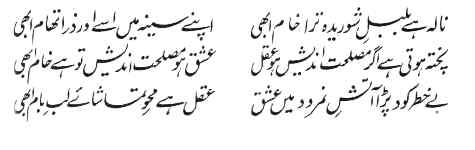 نالہ ہے بلبلِ شوریدہ ترا خام ابھی اپنے سینہ میں اسے اور ذرا تھام ابھی
پختہ ہوتی ہے اگر مصلحت اندیش ہو عقل عشق ہو مصلحت اندیش تو ہے خام ابھی
بے خطر کود پڑا آتشِ نمرود میں عشق عقل ہے محوِ تماشائے لبِ بام ابھی